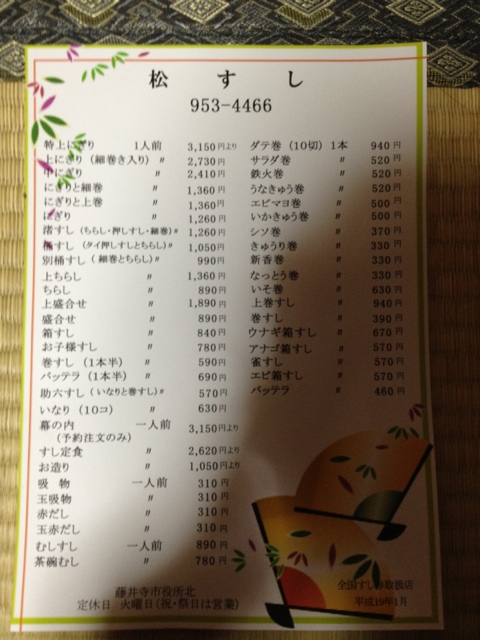 松すし
953-4466
特上にぎり 1人前 3,150円より
上にぎり (細巻き入り) 〃 2,730円
中にぎり 〃 2,410円
にぎりと細巻 〃 1,360円
にぎりと上巻 〃 1,360円
にぎり 〃 1,260円
渚すし (ちらし・押しすし・細巻) 〃 1,260円
桶すし (タイ押しすしとちらし) 〃 1,050円
別桶すし (細巻とちらし) 〃 990円
上ちらし 〃 1,360円
ちらし 〃 890円
上盛合せ 〃 1,890円
盛合せ 〃 890円
箱すし 〃 840円
お子様すし 〃 780円
巻すし (1本半) 〃 590円
バッテラ (1本半) 〃 690円
助六すし (いなりと巻すし) 〃 570円
いなり (10コ) 〃 630円
幕の内 一人前 3,150円より
(予約注文のみ)
すし定食 〃 2,620円より
お造り 〃 1,050円より
吸物 一人前 310円
玉吸物 〃 310円
赤だし 〃 310円
玉赤だし 〃 310円
むしすし 一人前 890円
茶碗むし 〃 780円
ダテ巻 (10切) 1本 940円
サラダ巻 〃 520円
鉄火巻 〃 520円
うなきゅう巻 〃 520円
エビマヨ巻 〃 500円
いかきゅう巻 〃 500円
シソ巻 〃 370円
きゅうり巻 〃 330円
新香巻 〃 330円
なっとう巻 〃 330円
いそ巻 〃 630円
上巻すし 〃 940円
巻すし 〃 390円
ウナギ箱すし 〃 670円
アナゴ箱すし 〃 570円
雀すし 〃 570円
エビ箱すし 〃 570円
バッテラ 〃 460円
藤井寺市役所北
定休日 火曜日(祝・祭日は営業)
全国すし券取扱店
平成19年1月